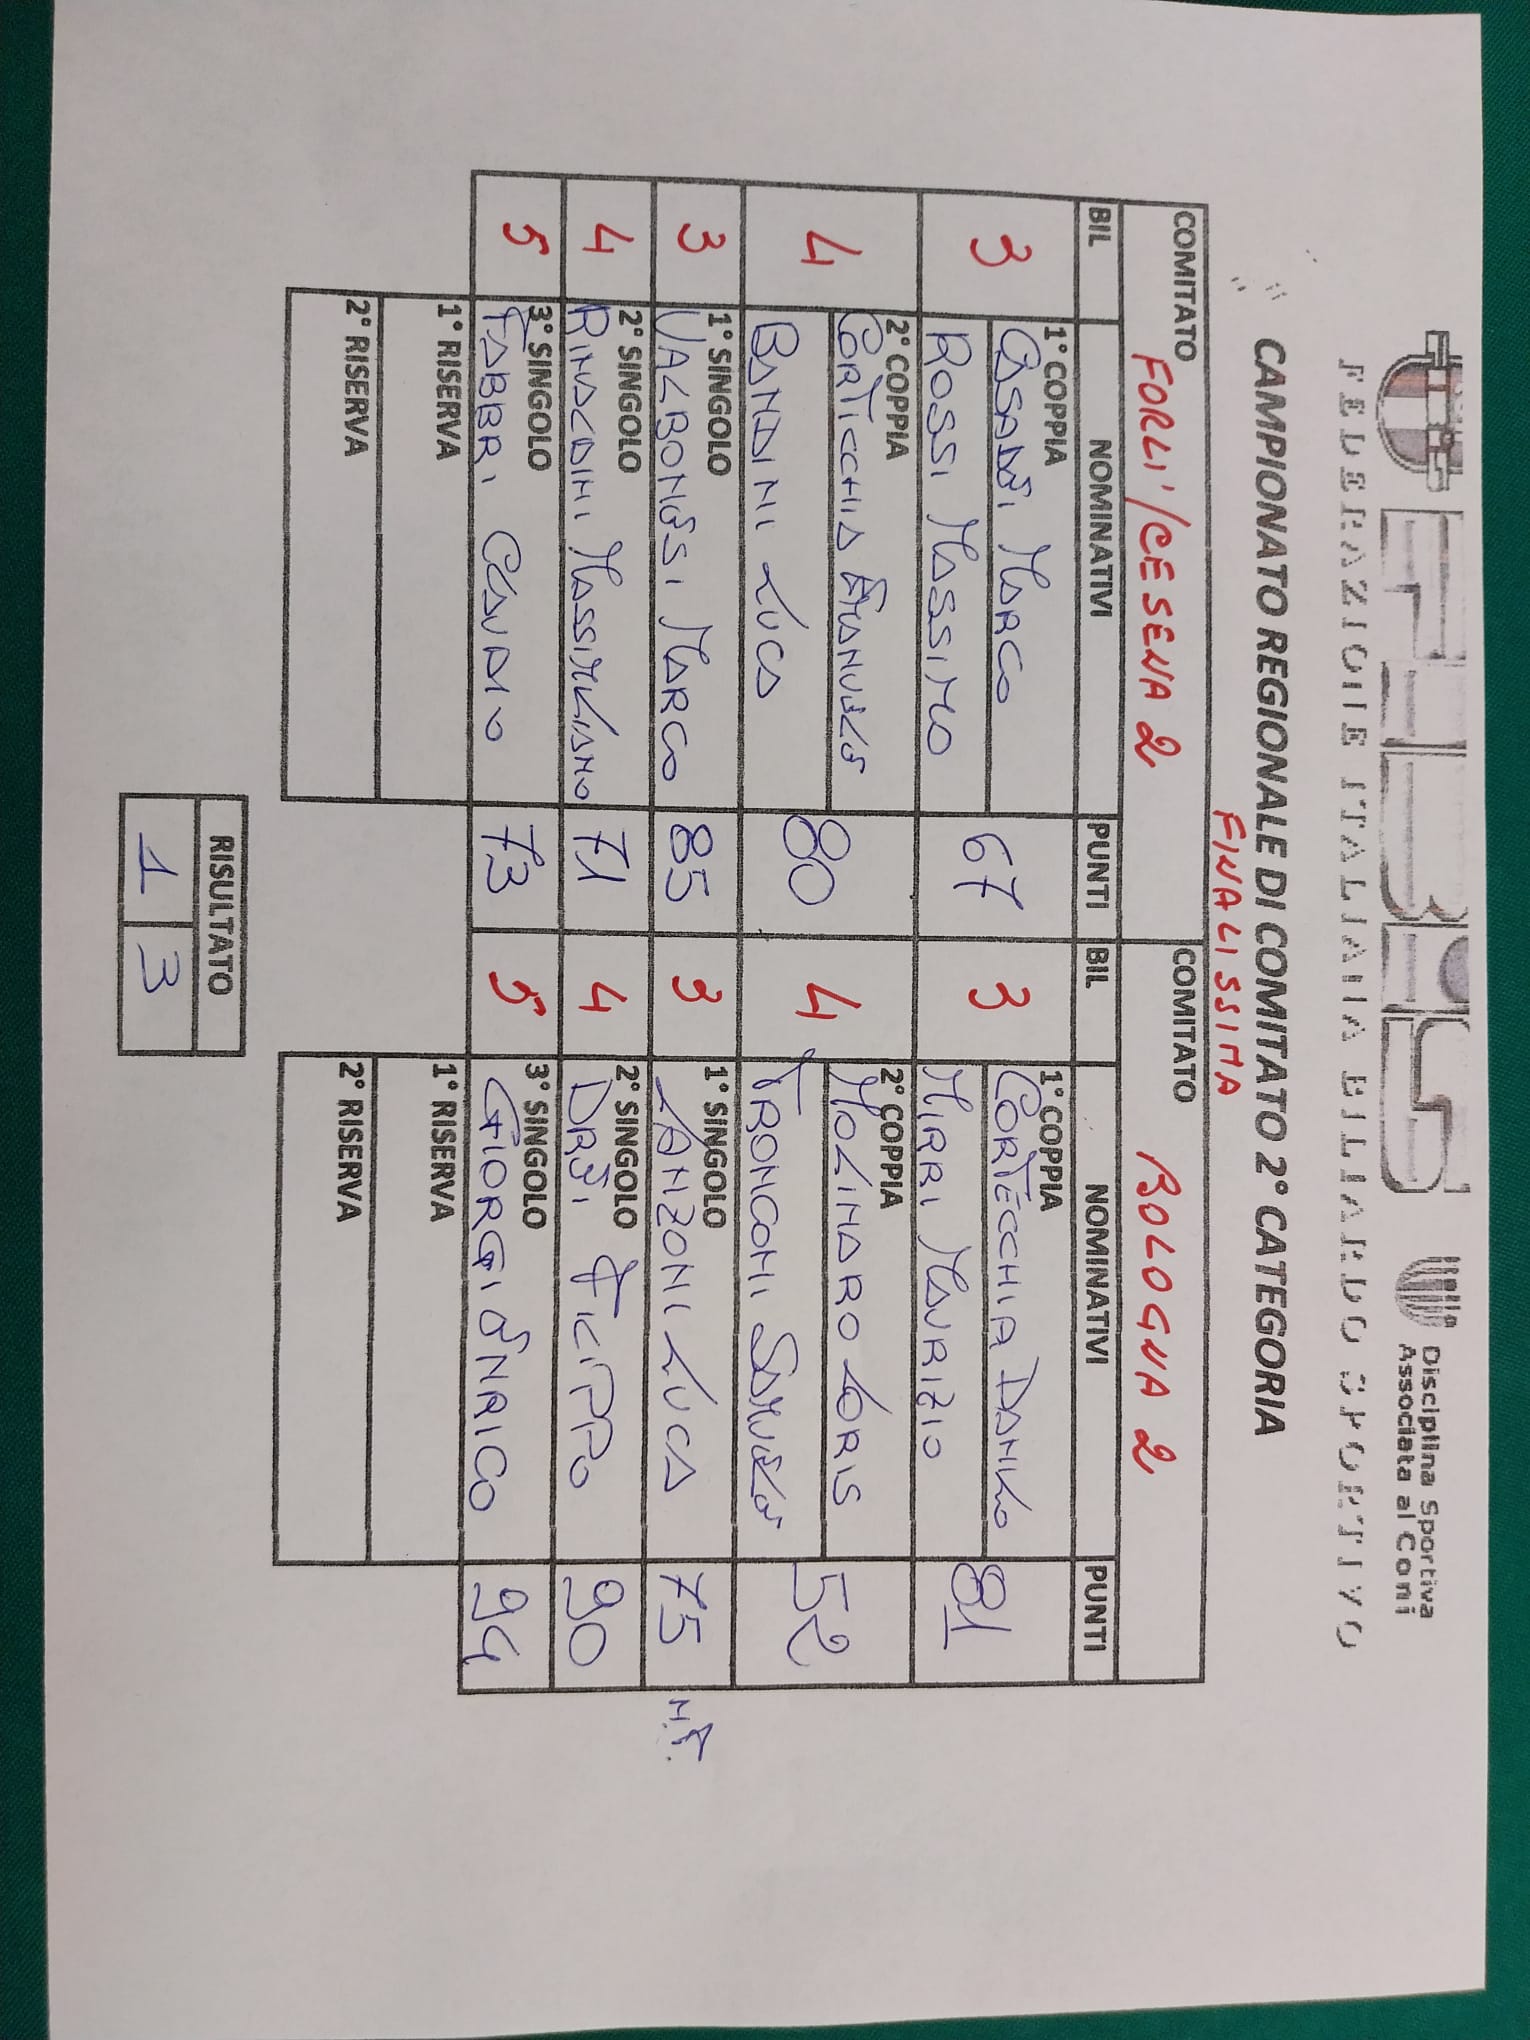 FIBIS
FEDERAZIONE ITALIANA BILIARDO SPORTIVO
Disciplina Sportiva
Associata al Coni
CAMPIONATO REGIONALE DI COMITATO 2° CATEGORIA
FINALISSIMA
COMITATO FORLI'/CESENA 2 COMITATO BOLOGNA 2
BIL NOMINATIVI PUNTI BIL NOMINATIVI PUNTI
3 1° COPPIA CASADEI MARCO 67 3 1° COPPIA CORTECCHIA DANILO 81
ROSSI MASSIMO MIRRI MAURIZIO
4 2° COPPIA CORTICCHIA EMANUELE 80 4 2° COPPIA MOLINARO LORIS 52
BANDINI LUCA TRONCONI SAMUELE
3 1° SINGOLO VALBONESI MARCO 85 3 1° SINGOLO LANZONI LUCA 75 N.T.
4 2° SINGOLO RINALDINI MASSIMILIANO 71 4 2° SINGOLO DREI FILIPPO 90
5 3° SINGOLO FABBRI CLAUDIO 73 5 3° SINGOLO GIORGI ENRICO 94
1° RISERVA 1° RISERVA
2° RISERVA 2° RISERVA
RISULTATO
1 3